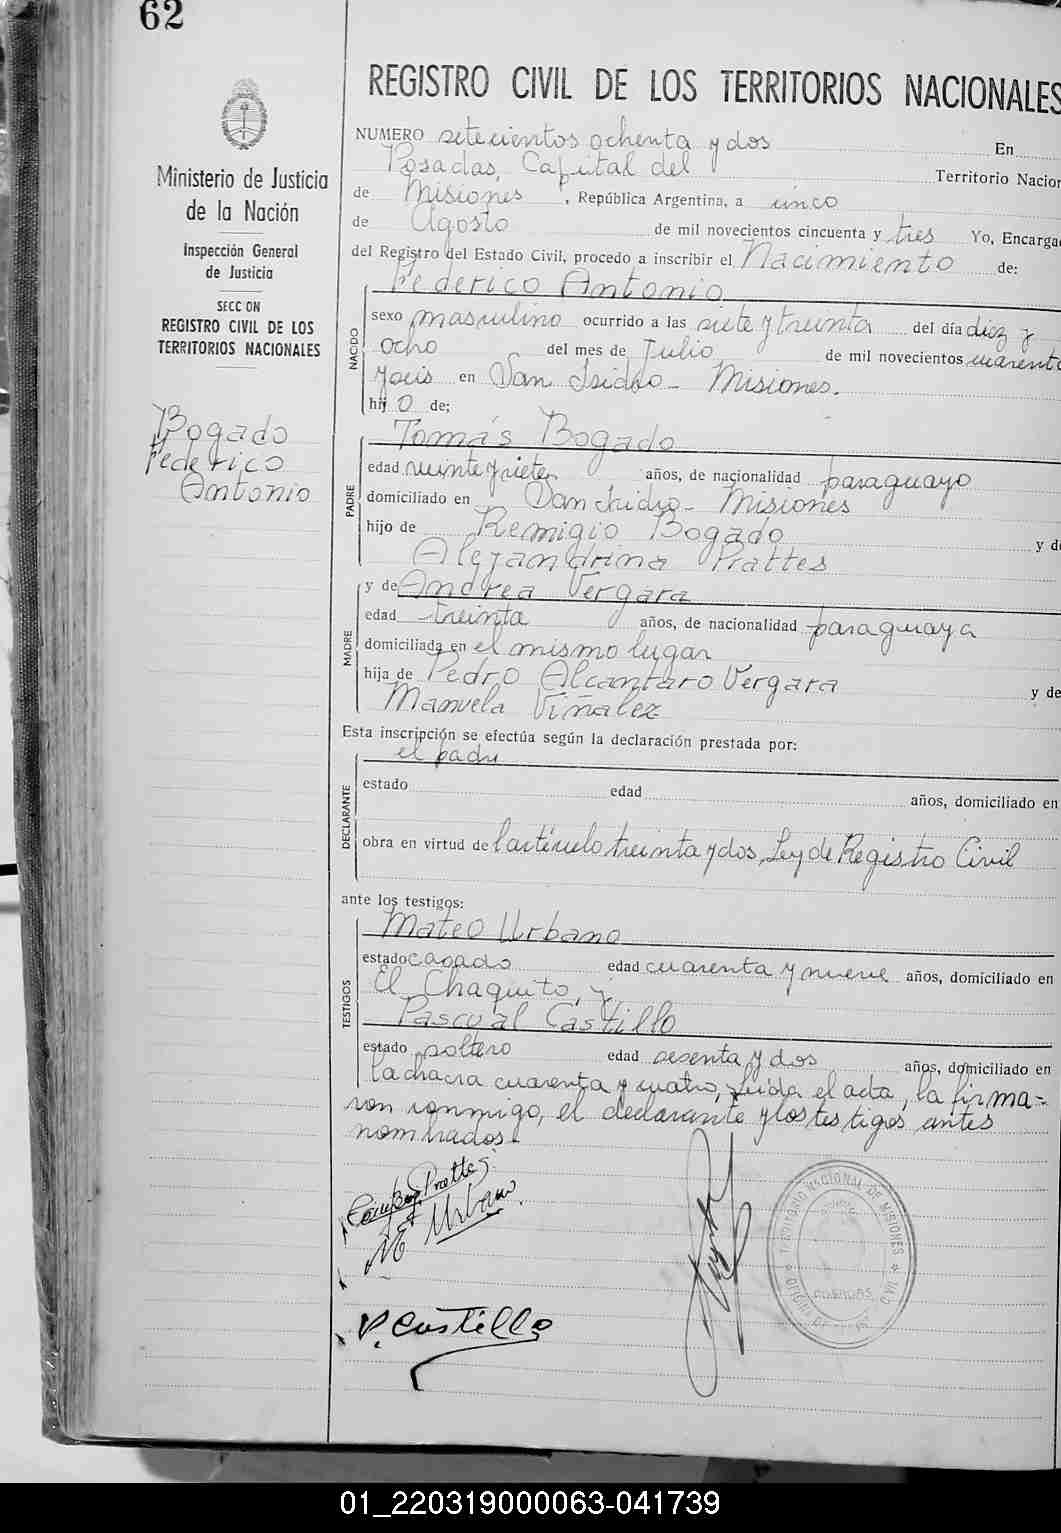 62
REGISTRO CIVIL DE LOS TERRITORIOS NACIONALES
Ministerio de Justicia
de la Nación
Inspección General
de Justicia
SECCION
REGISTRO CIVIL DE LOS
TERRITORIOS NACIONALES
Bogado
Federico
Antonio
NUMERO setecientos ochenta y dos En
Posadas, Capital del Territorio Nacion
de Misiones, República Argentina, a cinco
de Agosto de mil novecientos cincuenta y tres Yo, Encarga
del Registro del Estado Civil, procedo a inscribir el Nacimiento de:
Federico Antonio
NACIDO
sexo masculino ocurrido a las siete y treinta del día diez y
ocho del mes de Julio de mil novecientos cuarenta
y seis en San Isidro - Misiones.
hijo de;
Tomás Bogado
PADRE
edad veinte y siete años, de nacionalidad paraguayo
domiciliado en San Isidro - Misiones
hijo de Remigio Bogado y de
Alejandrina Prattes
y de Andrea Vergara
MADRE
edad treinta años, de nacionalidad paraguaya
domiciliada en el mismo lugar
hija de Pedro Alcantaro Vergara y de
Manuela Viñalez
Esta inscripción se efectúa según la declaración prestada por:
el padre
DECLARANTE
estado edad años, domiciliado en
obra en virtud del artículo treinta y dos, Ley de Registro Civil
ante los testigos:
Mateo Urbano
TESTIGOS
estado casado edad cuarenta y nueve años, domiciliado en
El Chaquito, y
Pascual Castillo
estado soltero edad sesenta y dos años, domiciliado en
la chacra cuarenta y cuatro, Leída el acta, la firma=
ron conmigo, el declarante y los testigos antes
nombrados.-
Prattes
M Urbano
P. Castillo
TERRITORIO NACIONAL DE MISIONES
POSADAS
01_220319000063-041739